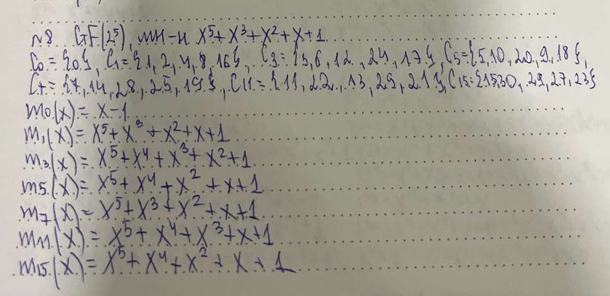 №8. GF(2⁵), мн-н x⁵+x³+x²+x+1
C₀={0}, C₁={1,2,4,8,16}, C₃={3,6,12,24,17}, C₅={5,10,20,9,18},
C₇={7,14,28,25,19}, C₁₁={11,22,13,26,21}, C₁₅={15,30,29,27,23}
m₀(x)=x-1
m₁(x)=x⁵+x³+x²+x+1
m₃(x)=x⁵+x⁴+x³+x²+1
m₅(x)=x⁵+x⁴+x²+x+1
m₇(x)=x⁵+x³+x²+x+1
m₁₁(x)=x⁵+x⁴+x³+x+1
m₁₅(x)=x⁵+x⁴+x²+x+1